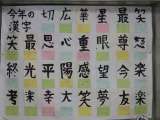 今年の漢字 切 広 華 星 最 笑
笑 最 思 心 重 眼 尊 怒
終 光 平 陽 感 望 金 楽
老 楽 幸 大 笑 夢 友 楽